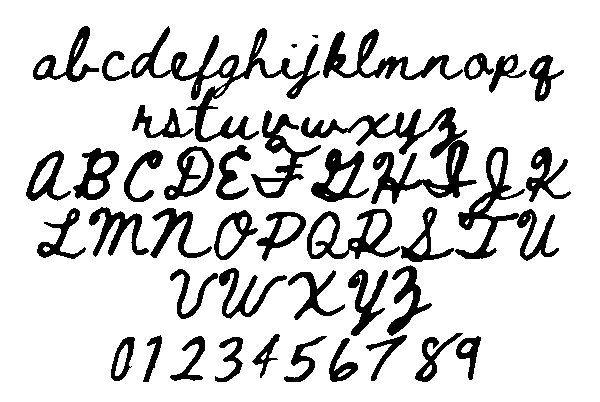 abcdefghijklmnopq
rstuvwxyz
ABCDEFGHIJK
LMNOPQRSTU
VWXYZ
0123456789